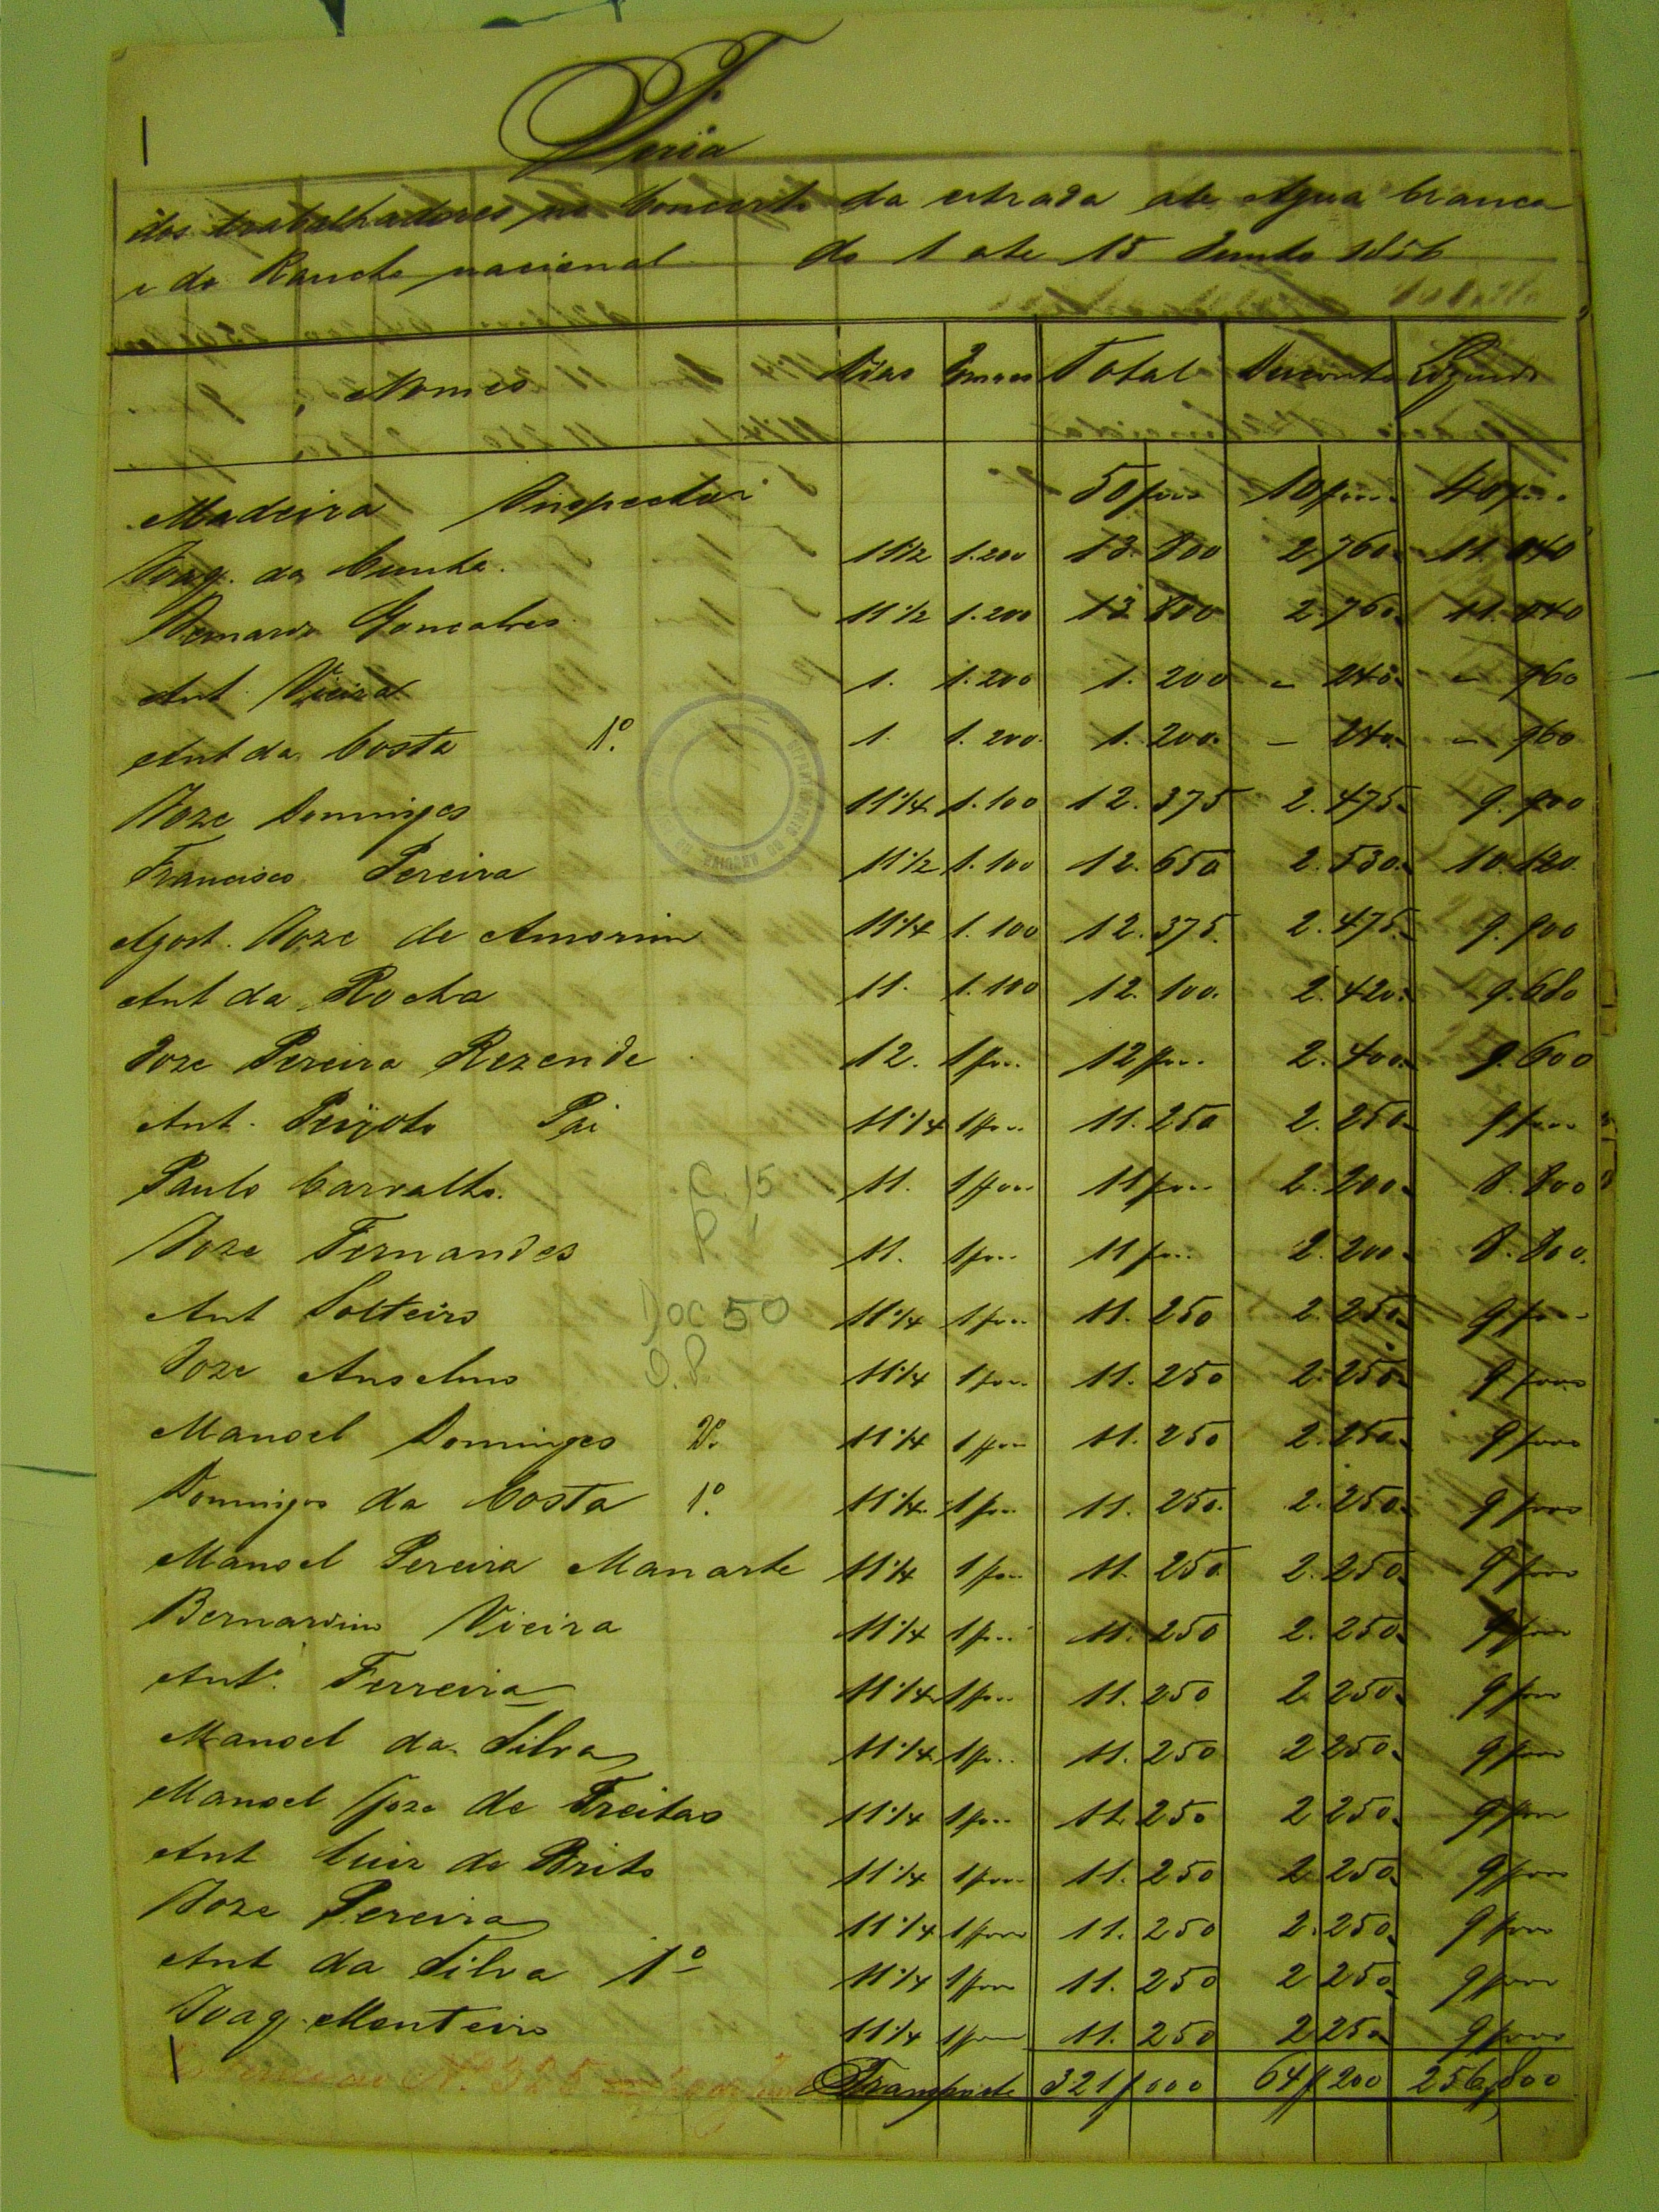 Feria
dos trabalhadores no Concerto da estrada ate Agua branca
e do Rancho nacional do 1 ate 15 Junho 1856
Nomes Dias Total Desconto Liquido
Madeira Inspector 50$000 10$000 40$000
Joaq. da Cunha. 11 1/2 1.200 13.800 2.760 11.040
Bernardo Goncalves 11 1/2 1.200 13.800 2.760 11.040
Ant. Vieira 1. 1.200 1.200 - 240 - 960
Ant da Costa 1º 1. 1.200. 1.200. - 240 - 960
Joze Domingos 11 1/4 1.100 12.375 2.475 9.900
Francisco Pereira 11 1/2 1.100 12.650 2.530 10.120.
Agost. Joze de Amorim 11 1/4 1.100 12.375. 2.475 9.900
Ant da Rocha 11. 1.100 12.100. 2.420 9.680
Joze Pereira Rezende 12. 1$000 12$000 2.400 9.600
Ant. Peixoto Pai 11 1/4 1$000 11.250 2.250 9$000
Paulo Carvalho. 11. 1$000 11$000 2.200 8.800
C. 15
P. 1
Joze Fernandes 11. 1$000 11$000 2.200 8.800.
Ant Solteiro 11 1/4 1$000 11.250 2.250 9$000
Doc 50
Joze Anselmo 11 1/4 1$000 11.250 2.250 9$000
O.P.
Manoel Domingos 2º 11 1/4 1$000 11.250 2.250 9$000
Domingos da Costa 1º 11 1/4 1$000 11.250. 2.250 9$000
Manoel Pereira Manarte 11 1/4 1$000 11.250. 2.250 9$000
Bernardino Vieira 11 1/4 1$000 11.250 2.250 9$000
Antº. Ferreira 11 1/4 1$000 11.250 2.250 9$000
Manoel da Silva 11 1/4 1$000 11.250 2.250 9$000
Manoel Joze de Freitas 11 1/4 1$000 11.250 2.250 9$000
Ant Luiz de Brito 11 1/4 1$000 11.250 2.250 9$000
Joze Pereira 11 1/4 1$000 11.250 2.250 9$000
Ant da Silva 1º 11 1/4 1$000 11.250 2.250 9$000
Joaq. Monteiro 11 1/4 1$000 11.250 2.250 9$000
Nº 325
Transporte 321$000 64$200 256$800